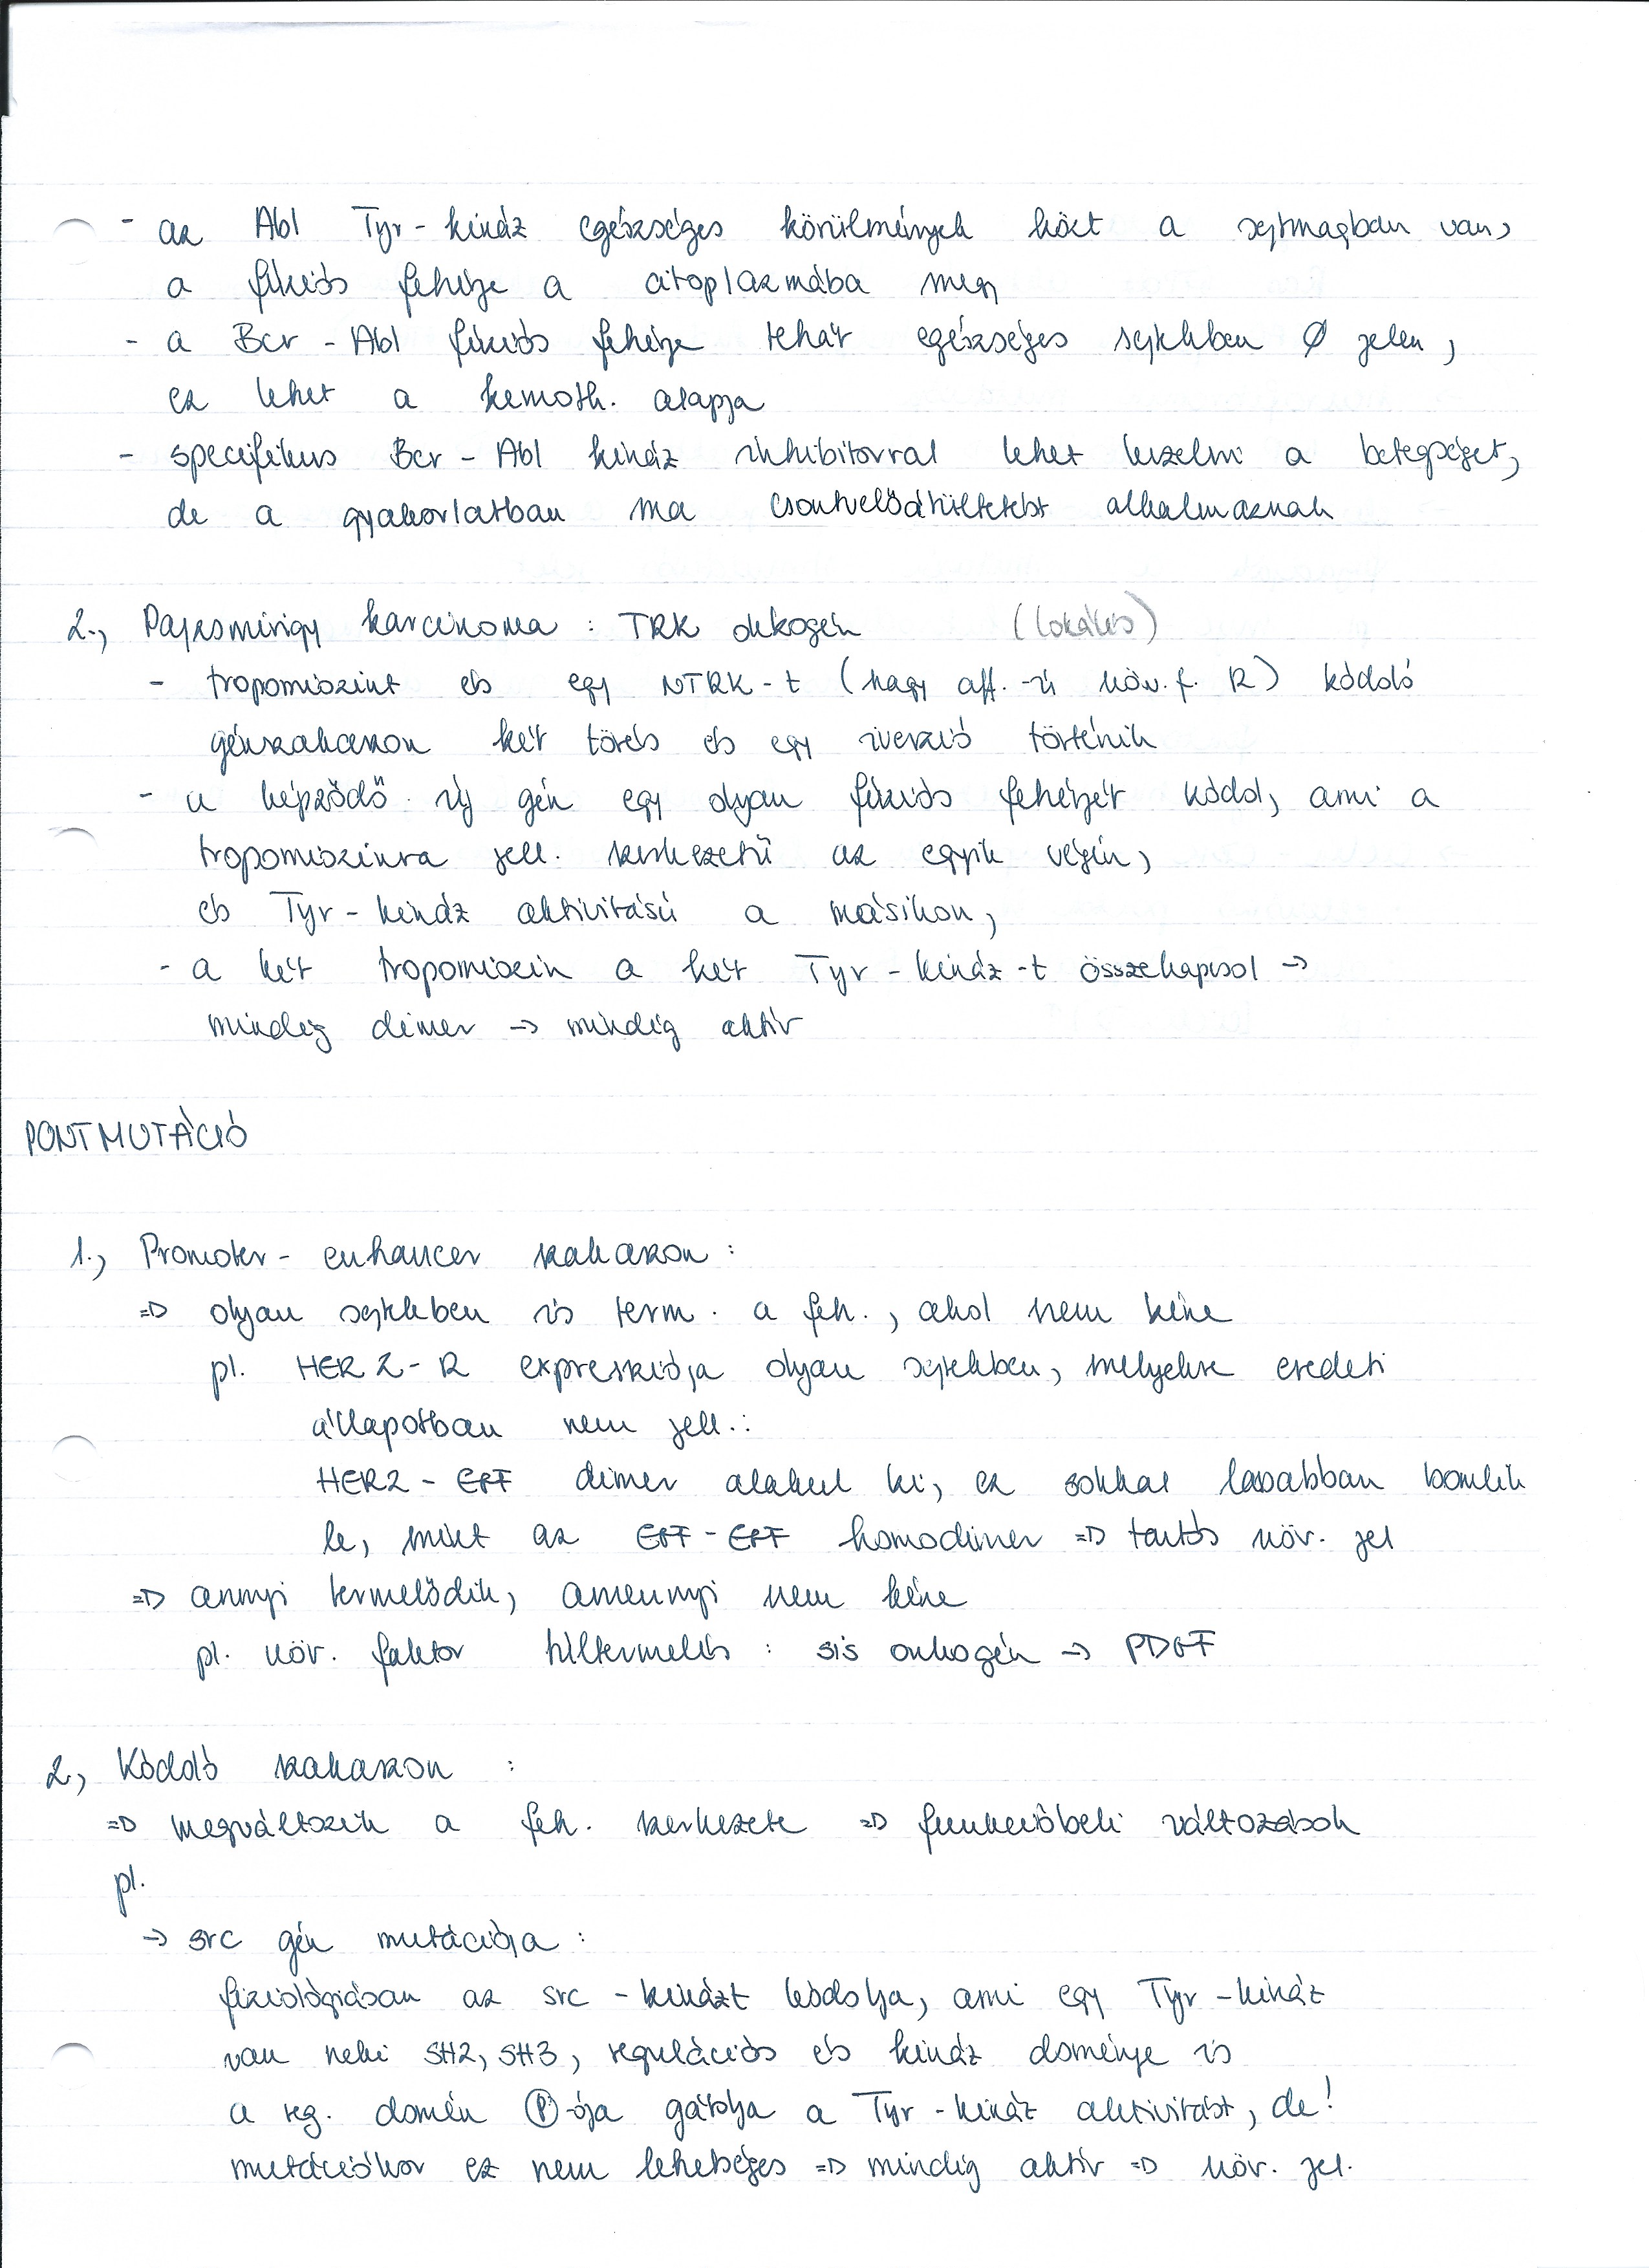 - az Abl Tyr-kináz egészséges körülmények közt a sejtmagban van,
a fúziós fehérje a citoplazmába megy
- a Bcr-Abl fúziós fehérje tehát egészséges sejtekben Ø jelen,
ez lehet a kemoth. alapja
- specifikus Bcr-Abl kináz inhibitorral lehet kezelni a betegséget,
de a gyakorlatban ma csontvelőátültetést alkalmaznak
2., Pajzsmirigy karcinoma : TRK onkogén (lokális)
- tropomiozint és egy NTRK-t (nagy aff.-ú növ.f. R) kódoló
génszakaszon két törés és egy inverzió történik
- a képződő új gén egy olyan fúziós fehérjét kódol, ami a
tropomiozinra jell. szerkezetű az egyik végén,
és Tyr-kináz aktivitású a másikon,
- a két tropomiozin a két Tyr-kináz-t összekapcsol →
mindig dimer → mindig aktív
PONTMUTÁCIÓ
1., Promoter-enhancer szakaszon :
⇒ olyan sejtekben is term. a feh., ahol nem kéne
pl. HER2-R expressziója olyan sejtekben, melyekre eredeti
állapotban nem jell.:
HER2-EGF dimer alakul ki, ez sokkal lassabban bomlik
le, mint az EGF-EGF homodimer ⇒ tartós növ. jel
⇒ annyi termelődik, amennyi nem kéne
pl. növ. faktor túltermelés : sis onkogén → PDGF
2, Kódoló szakaszon :
⇒ megváltozik a feh. szerkezete ⇒ funkcióbeli változások
pl.
→ src gén mutációja :
fiziológiásan az src-kinázt kódolja, ami egy Tyr-kináz
van neki SH2, SH3, regulációs és kináz doménje is
a reg. domén Ⓟ-ója gátolja a Tyr-kináz aktivitást, de!
mutációkor ez nem lehetséges ⇒ mindig aktív ⇒ növ. jel.